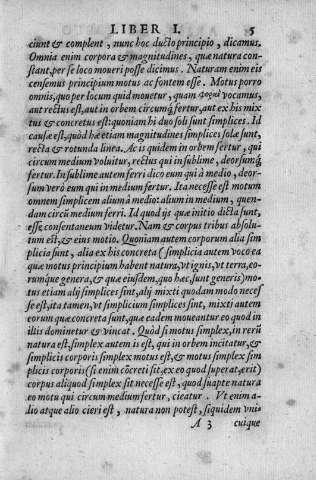 LIBER I. 5
ciunt & complent, nunc hoc ducto principio, dicamus.
Omnia enim corpora & magnitudines, quæ natura con-
stant, per se loco moueri posse dicimus. Naturam enim eis
censemus principium motus ac fontem esse. Motus porro
omnis, quo per locum quid mouetur, quam vocamus,
aut rectus est, aut in orbem circumq́ fertur, aut ex his mix
tus & concretus est: quoniam hi duo soli sunt simplices. Id
causæ est, quòd hæ etiam magnitudines simplices solæ sunt,
recta & rotunda linea. Ac is quidem in orbem fertur, qui
circum medium voluitur, rectus qui in sublime, deorsumq́
fertur. In sublime autem ferri dico eum qui à medio, deor-
sum verò eum qui in medium fertur. Ita necesse est motum
omnem simplicem alium à medio: alium in medium, quen-
dam circũ medium ferri. Id quod ijs quæ initio dicta sunt,
esse consentaneum videtur. Nam & corpus tribus absolu-
tum est, & eius motio. Quoniam autem corporum alia sim
plicia sunt, alia ex his concreta (simplicia autem voco ea
quæ motus principium habent natura, vt ignis, vt terra, eo-
rumque genera, & quæ eiusdem, quo hæc, sunt generis) mo-
tus etiam alij simplices sint, alij mixti quodam modo neces
se est, ita tamen, vt simplicium simplices sint, mixti autem
eorum quæ concreta sunt, quæ eadem moueantur eo quod in
illis dominetur & vincat. Quòd si motus simplex, in rerũ
natura est, simplex autem is est, qui in orbem incitatur, &
simplicis corporis simplex motus est, & motus simplex sim
plicis corporis (si enim cõcreti sit, ex eo quod superat, erit)
corpus aliquod simplex sit necesse est, quod suapte natura
eo motu qui circum medium fertur, cieatur. Vt enim a-
lio atque alio cieri est, natura non potest, siquidem vni-
A 3 cuique